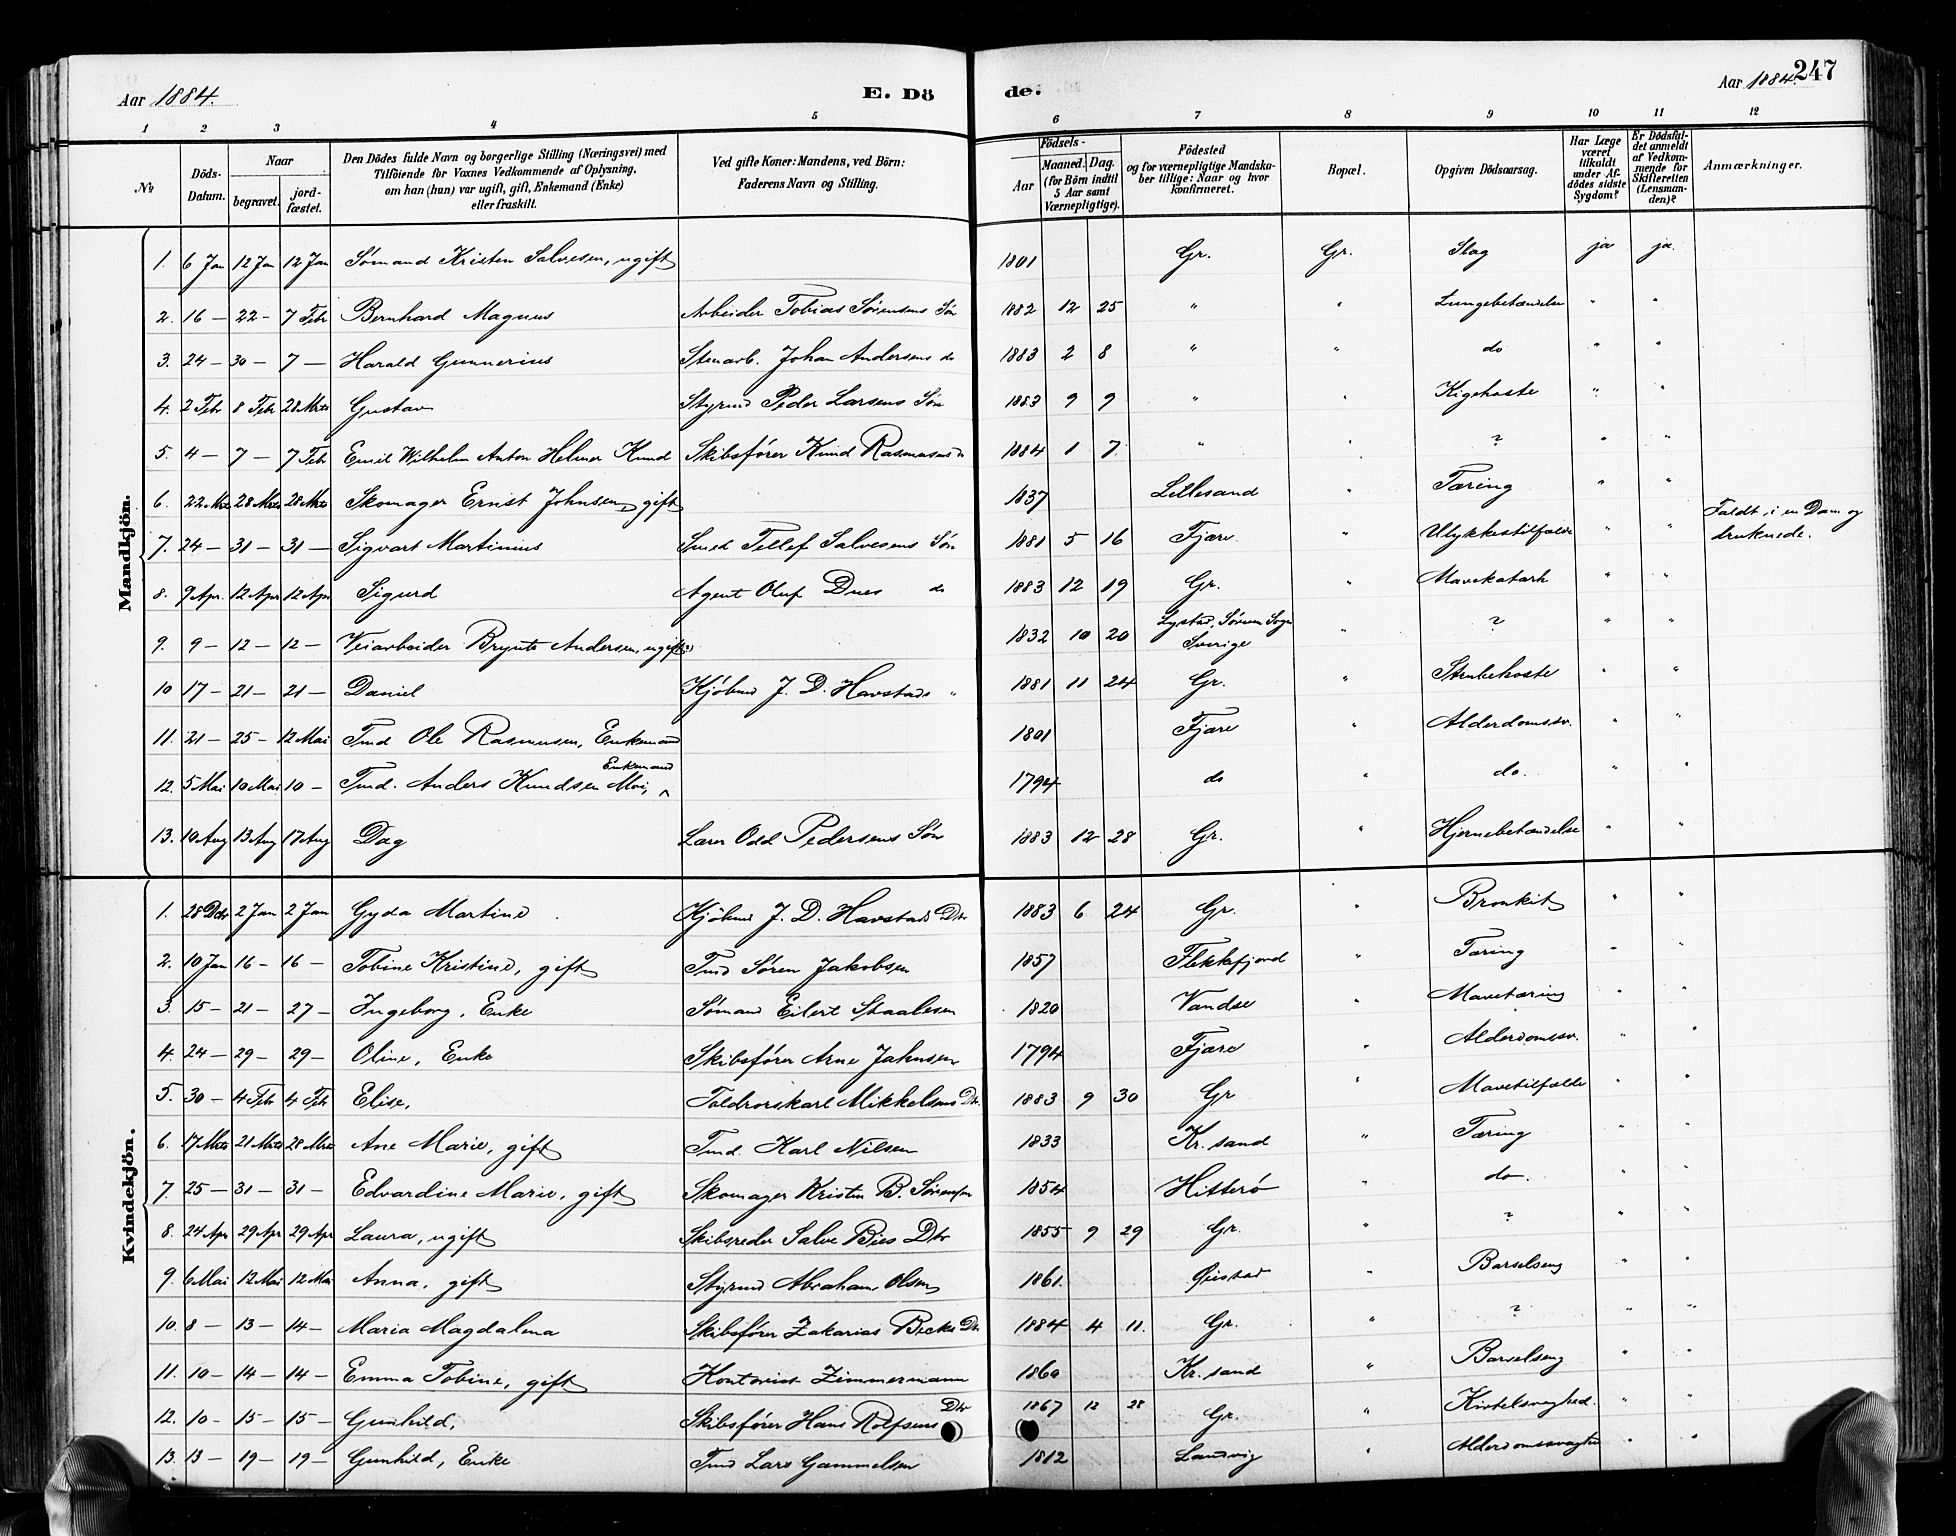 Aar 1884. E. Dö de. Aar 1884. 247
1 2 3 4 5 6 7 8 9 10 11 12
№ Döds-Datum. Naar begravet. jord-fæstet. Den Dödes fulde Navn og borgerlige Stilling (Næringsvei) med Tilföiende for Voxnes Vedkommende af Oplysning, om han (hun) var ugift, gift, Enkemand (Enke) eller fraskilt. Ved gifte Koner: Mandens, ved Börn: Faderens Navn og Stilling. Födsels- Aar Maaned. Dag. (for Börn indtil 5 Aar samt Værnepligtige). Födested og for værnepligtige Mandska-ber tillige: Naar og hvor konfirmeret. Bopæl. Opgiven Dödsaarsag. Har Læge været tilkaldt under Af-dödes sidste Sygdom? Er Dödsfal-det anmeldt af Vedkom-mende for Skifteretten (Lensman-den)? Anmærkninger.
Mandkjön.
1. 6 Jan 12 Jan 12 Jan Sømand Kristen Salvesen, ugift 1801 Gr. Gr. Slag ja ja.
2. 16 — 22 — 7 Febr Bernhard Magnus Arbeider Tobias Sørensens Søn 1882 12 25 " " Lungebetændelse " "
3. 24 — 30 — 7 — Harald Gunnerius Stenarb. Johan Andersens do 1883 2 8 " " do " "
4. 2 Febr 8 Febr 28 Mrts Gustav Styrmd Peder Larsens Søn 1883 9 9 " " Kighoste " "
5. 4 — 7 — 7 Febr Emil Wilhelm Anton Helmer Knud Skibsfører Knud Rasmusens 1884 1 7 " " ? " "
6. 22 Mrts 28 Mrts 28 Mrts Skomager Ernst Johnsen, gift 1837 Lillesand " Tæring " "
7. 24 — 31 — 31 — Sigvart Martinius Smed Tellef Salvesens Søn 1881 5 16 Fjære " Ulykkestilfælde " " Faldt i en Dam og druknede.
8. 9 Apr. 12 Apr 12 Apr Sigurd Agent Oluf Dues do 1883 12 19 Gr. " Mavekatarh " "
9. 9 — 12 — 12 — Veiarbeider Brynte Andersen, ugift 1832 10 20 Sogn Sverige " ? " "
10 17 — 21 — 21 — Daniel Kjøbmd J. D. Havstads " 1881 11 24 Gr. " Strubehoste " "
11. 21 — 25 — 12 Mai Tmd Ole Rasmusen, Enkemand 1801 Fjære " Alderdomssv. " "
12. 5 Mai 10 Mai 10 — Tmd. Anders Knudsen Moi, Enkemand 1794 do " do. " "
13. 10 Aug 13 Aug 17 Aug Dag Lærer Odd Pedersens Søn 1883 12 28 Gr. " Hjernebetændelse " "
Kvindekjön.
1. 28 Dcbr 2 Jan 2 Jan Gyda Martine Kjøbmd J. D. Havstads Dtr 1883 6 24 Gr. " Bronkit " "
2. 10 Jan 16 — 16 — Tobine Kristine, gift Tmd Søren Jakobsen 1857 Flekkefjord " Tæring " "
3. 15 — 21 — 27 — Ingeborg, Enke Sømand Eilert Staalesen 1820 Vandsø " Mavetæring " "
4. 24 — 29 — 29 — Oline, Enke Skibsfører Arne Jahnsen 1794 Fjære " Alderdomssv. " "
5. 30 — 4 Febr 4 Febr Elise, Toldrorskarl Mikkelsens Dtr. 1883 9 30 Gr " Mavetilfælde " "
6. 17 Mrts 21 Mrts 28 Mrts Ane Marie, gift Tmd. Karl Nilsen 1833 Kr.sand " Tæring " "
7 25 — 31 — 31 — Edvardine Marie, gift Skomager Kristen B. Sørensen 1854 Hitterø " do. " "
8. 24 Apr 29 Apr 29 Apr Laura, ugift Skibsreder Salve Bies Dtr 1855 9 29 Gr. " ? " "
9. 6 Mai 12 Mai 12 Mai Anna, gift Styrmd Abraham Olsen 1861. Øiestad " Barselseng " "
10. 8 — 13 — 14 — Maria Magdalena Skibsfører Zakarias Becks Dtr 1884 4 11. Gr. " ? " "
11. 10 — 14 — 14 — Emma Tobine, gift Kontorist Zimmermann 1860 Kr.sand " Barselseng " "
12. 10 — 15 — 15 — Gunhild, Skibsfører Hans Rolfsens Dtr 1867 12 28 Gr. " Kirtelsvaghed. " "
13. 13 — 19 — 19 — Gunhild, Enke Tmd Lars Gammelsen 1812 Landvig " Alderdomssvaghed " "